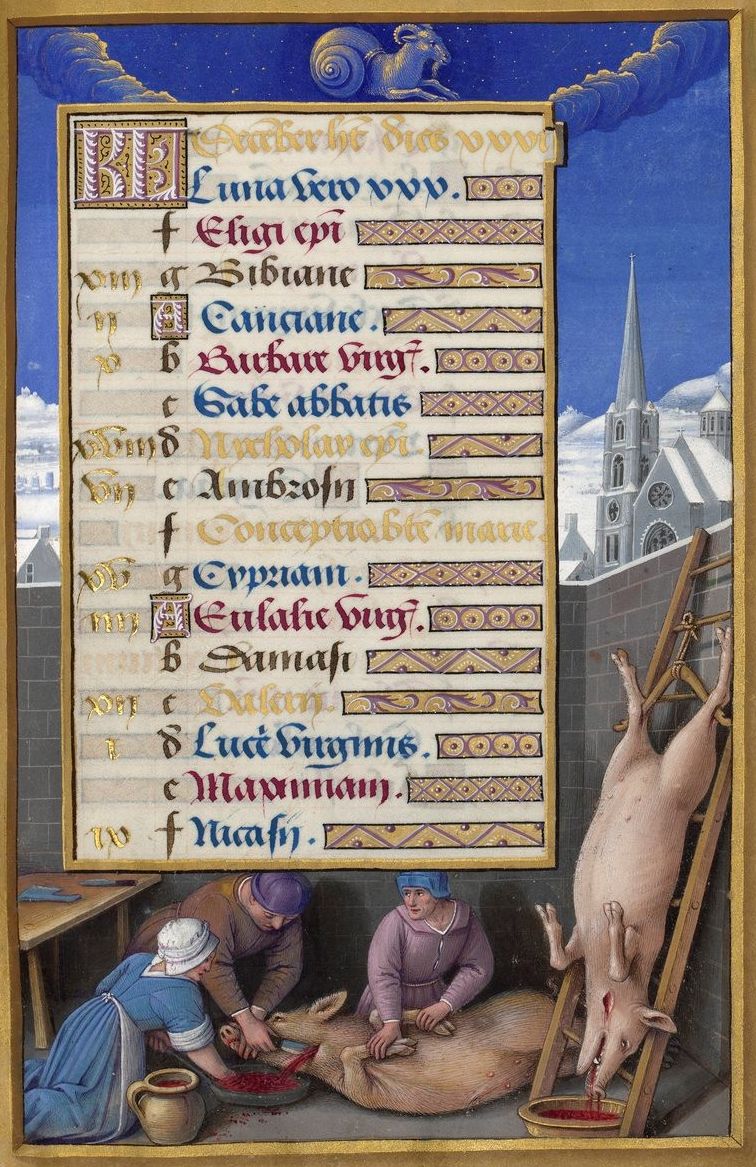 KL Deceber ht dies xxxi
Luna vero xxx.
f Eligi epi
xiii g Bibiane
ii A Canciane.
x b Barbare virg.
c Sabe abbatis
xviii d Nycholay epi.
vii e Ambrosii
f Conceptio bte marie.
xv g Cypriani.
iiii A Eulalie virg.
b Damasi
xii c Valerii.
i d Lucie virginis.
e Maximiani.
ix f Nicasii.